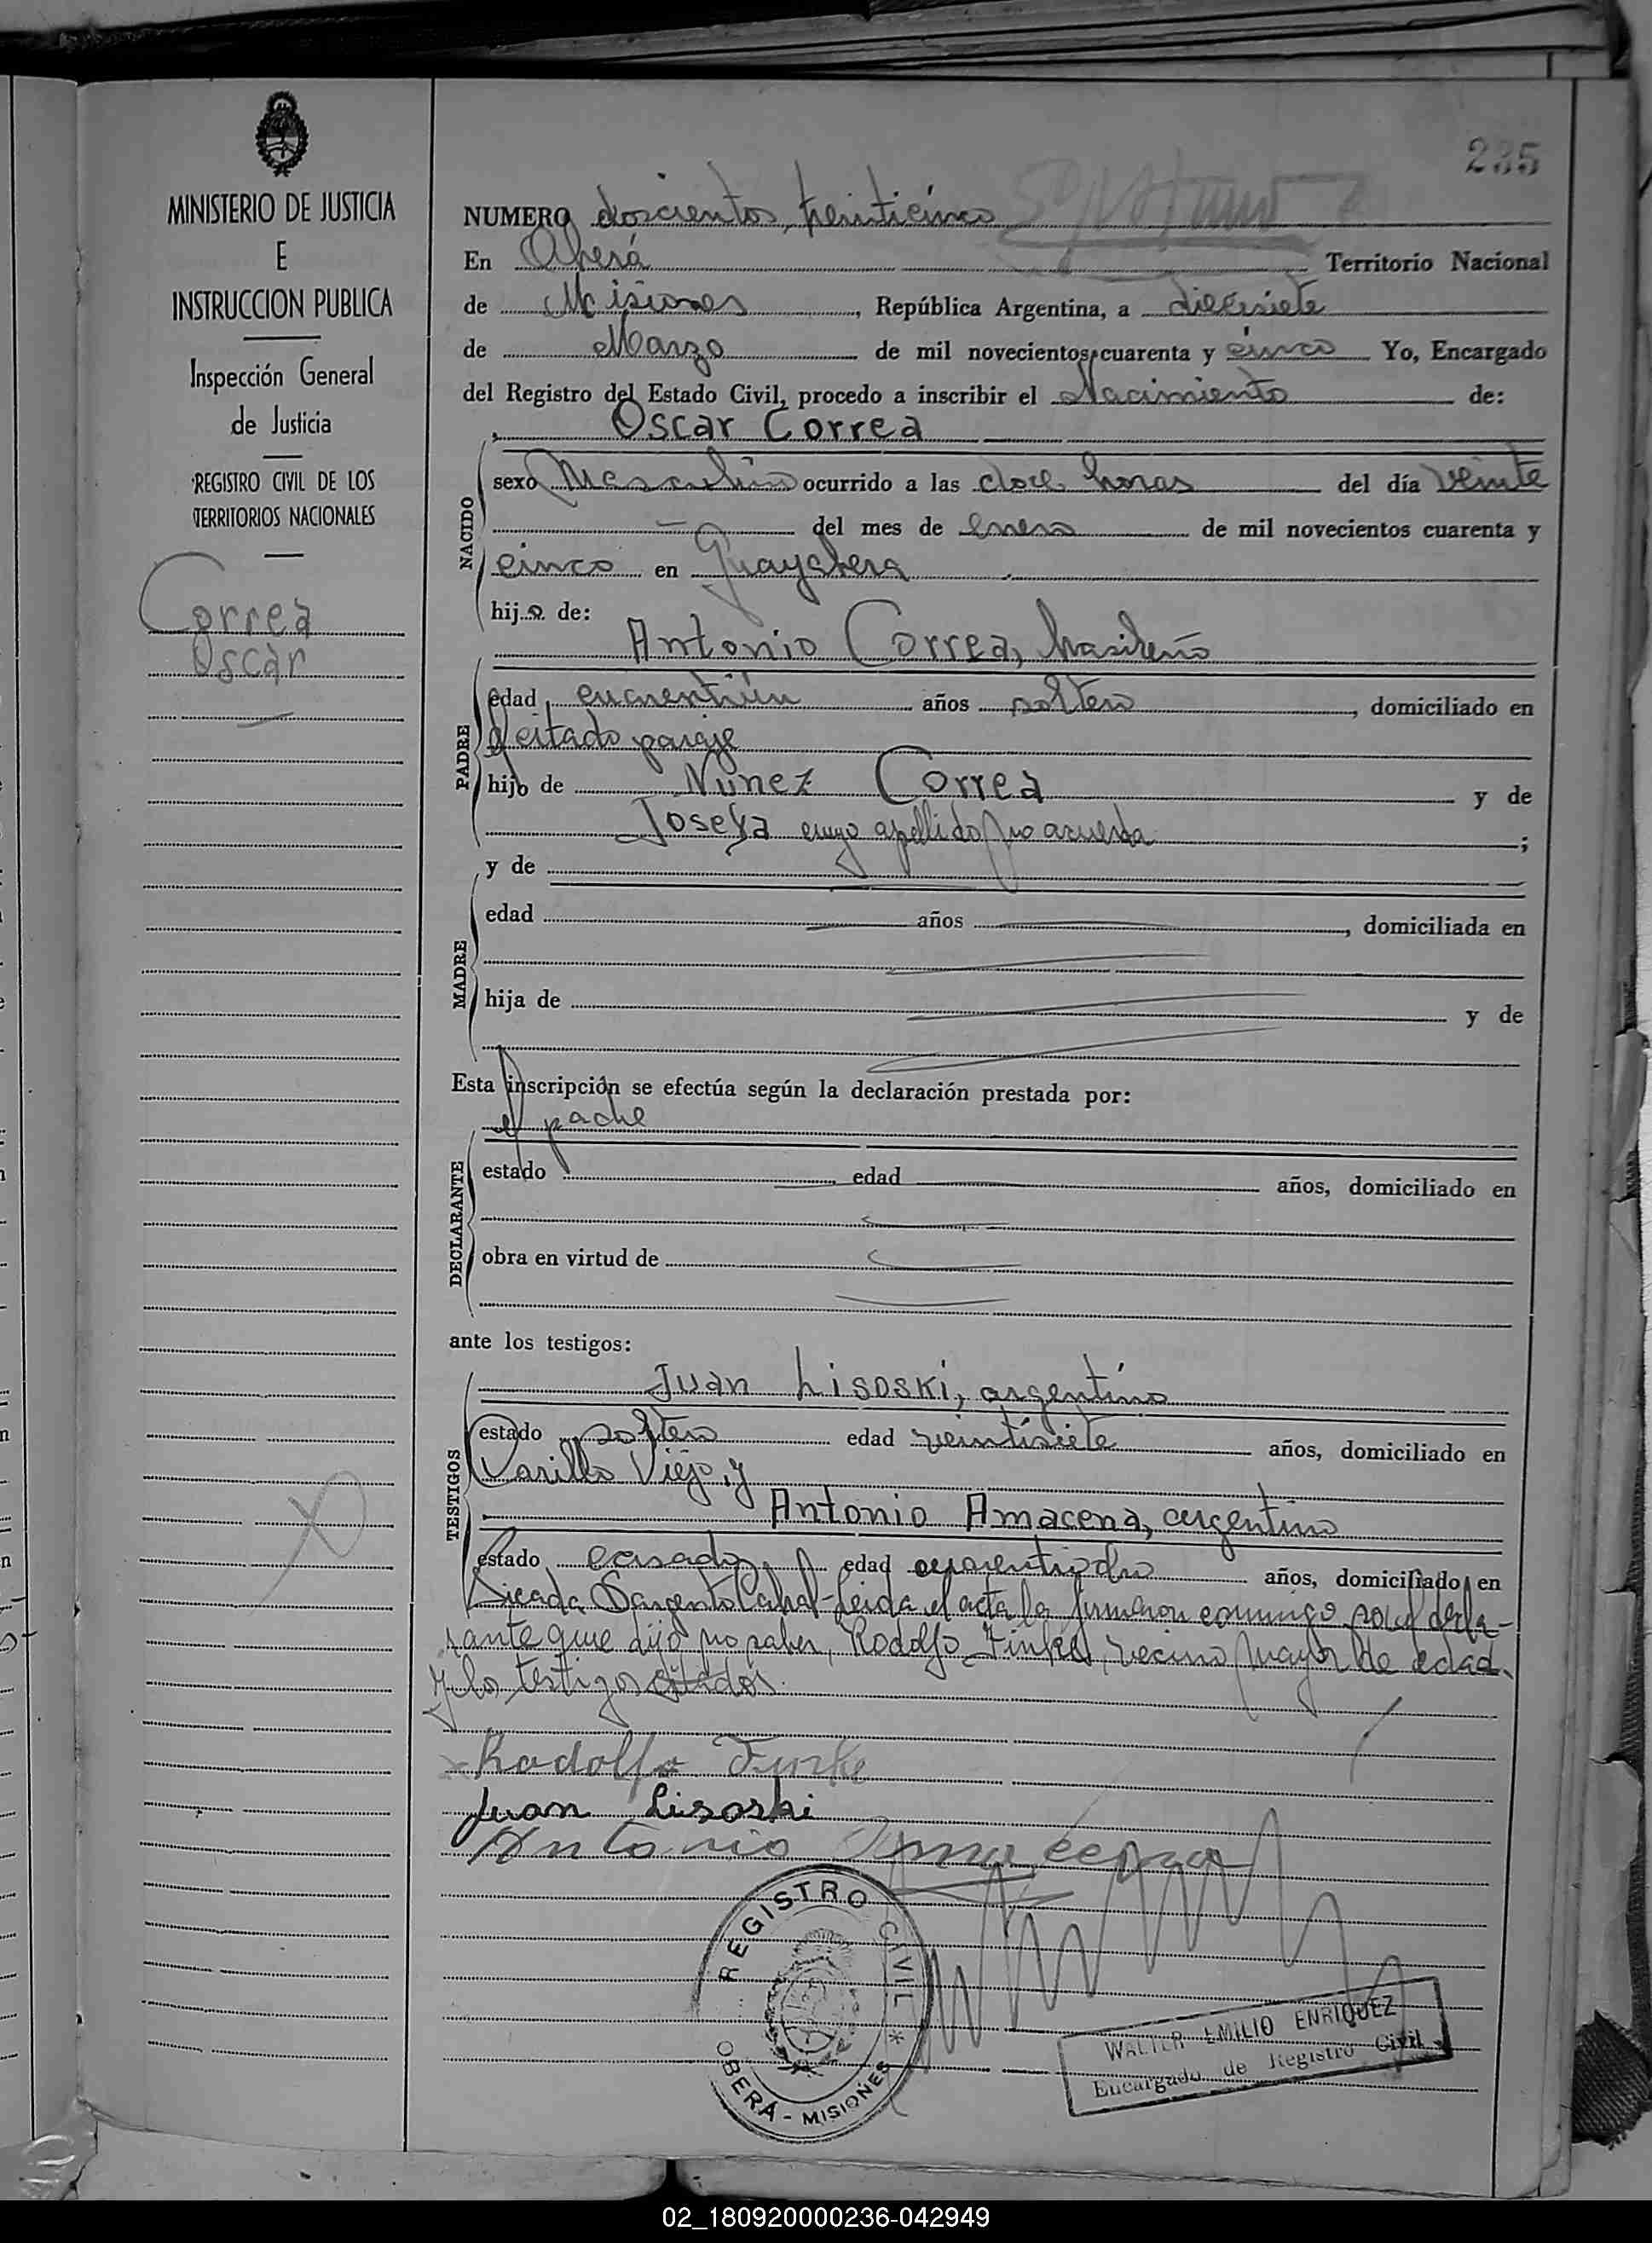 235
MINISTERIO DE JUSTICIA
E
INSTRUCCION PUBLICA
Inspección General
de Justicia
REGISTRO CIVIL DE LOS
TERRITORIOS NACIONALES
Correa
Oscar
NUMERO doscientos treinticinco
En Oberá Territorio Nacional
de Misiones, República Argentina, a diecisiete
de Marzo de mil novecientos cuarenta y cinco Yo, Encargado
del Registro del Estado Civil, procedo a inscribir el Nacimiento de:
Oscar Correa
NACIDO
sexo Masculino ocurrido a las doce horas del día veinte
del mes de Enero de mil novecientos cuarenta y
cinco en Guayabera
hijo de:
Antonio Correa, brasileño
PADRE
edad cuarentiún años soltero, domiciliado en
el citado paraje
hijo de Nunez Correa y de
Josefa cuyo apellido no acuerda;
y de
MADRE
edad años, domiciliada en
hija de y de
Esta inscripción se efectúa según la declaración prestada por:
el padre
DECLARANTE
estado edad años, domiciliado en
obra en virtud de
ante los testigos:
Juan Lisoski, argentino
TESTIGOS
estado soltero edad veintisiete años, domiciliado en
Yerbal Viejo, y
Antonio Amacena, argentino
estado casado, edad cuarentiocho años, domiciliado en
Picada Sargento Cabral-Leida el acta la firmaron conmigo por el decla-
rante que dijo no saber, Rodolfo Finke, vecino mayor de edad
y los testigos citados.
Rodolfo Finke
Juan Lisoski
Antonio Amacena
REGISTRO CIVIL *
OBERÁ - MISIONES
WALTER EMILIO ENRIQUEZ
Encargado de Registro Civil
02_180920000236-042949